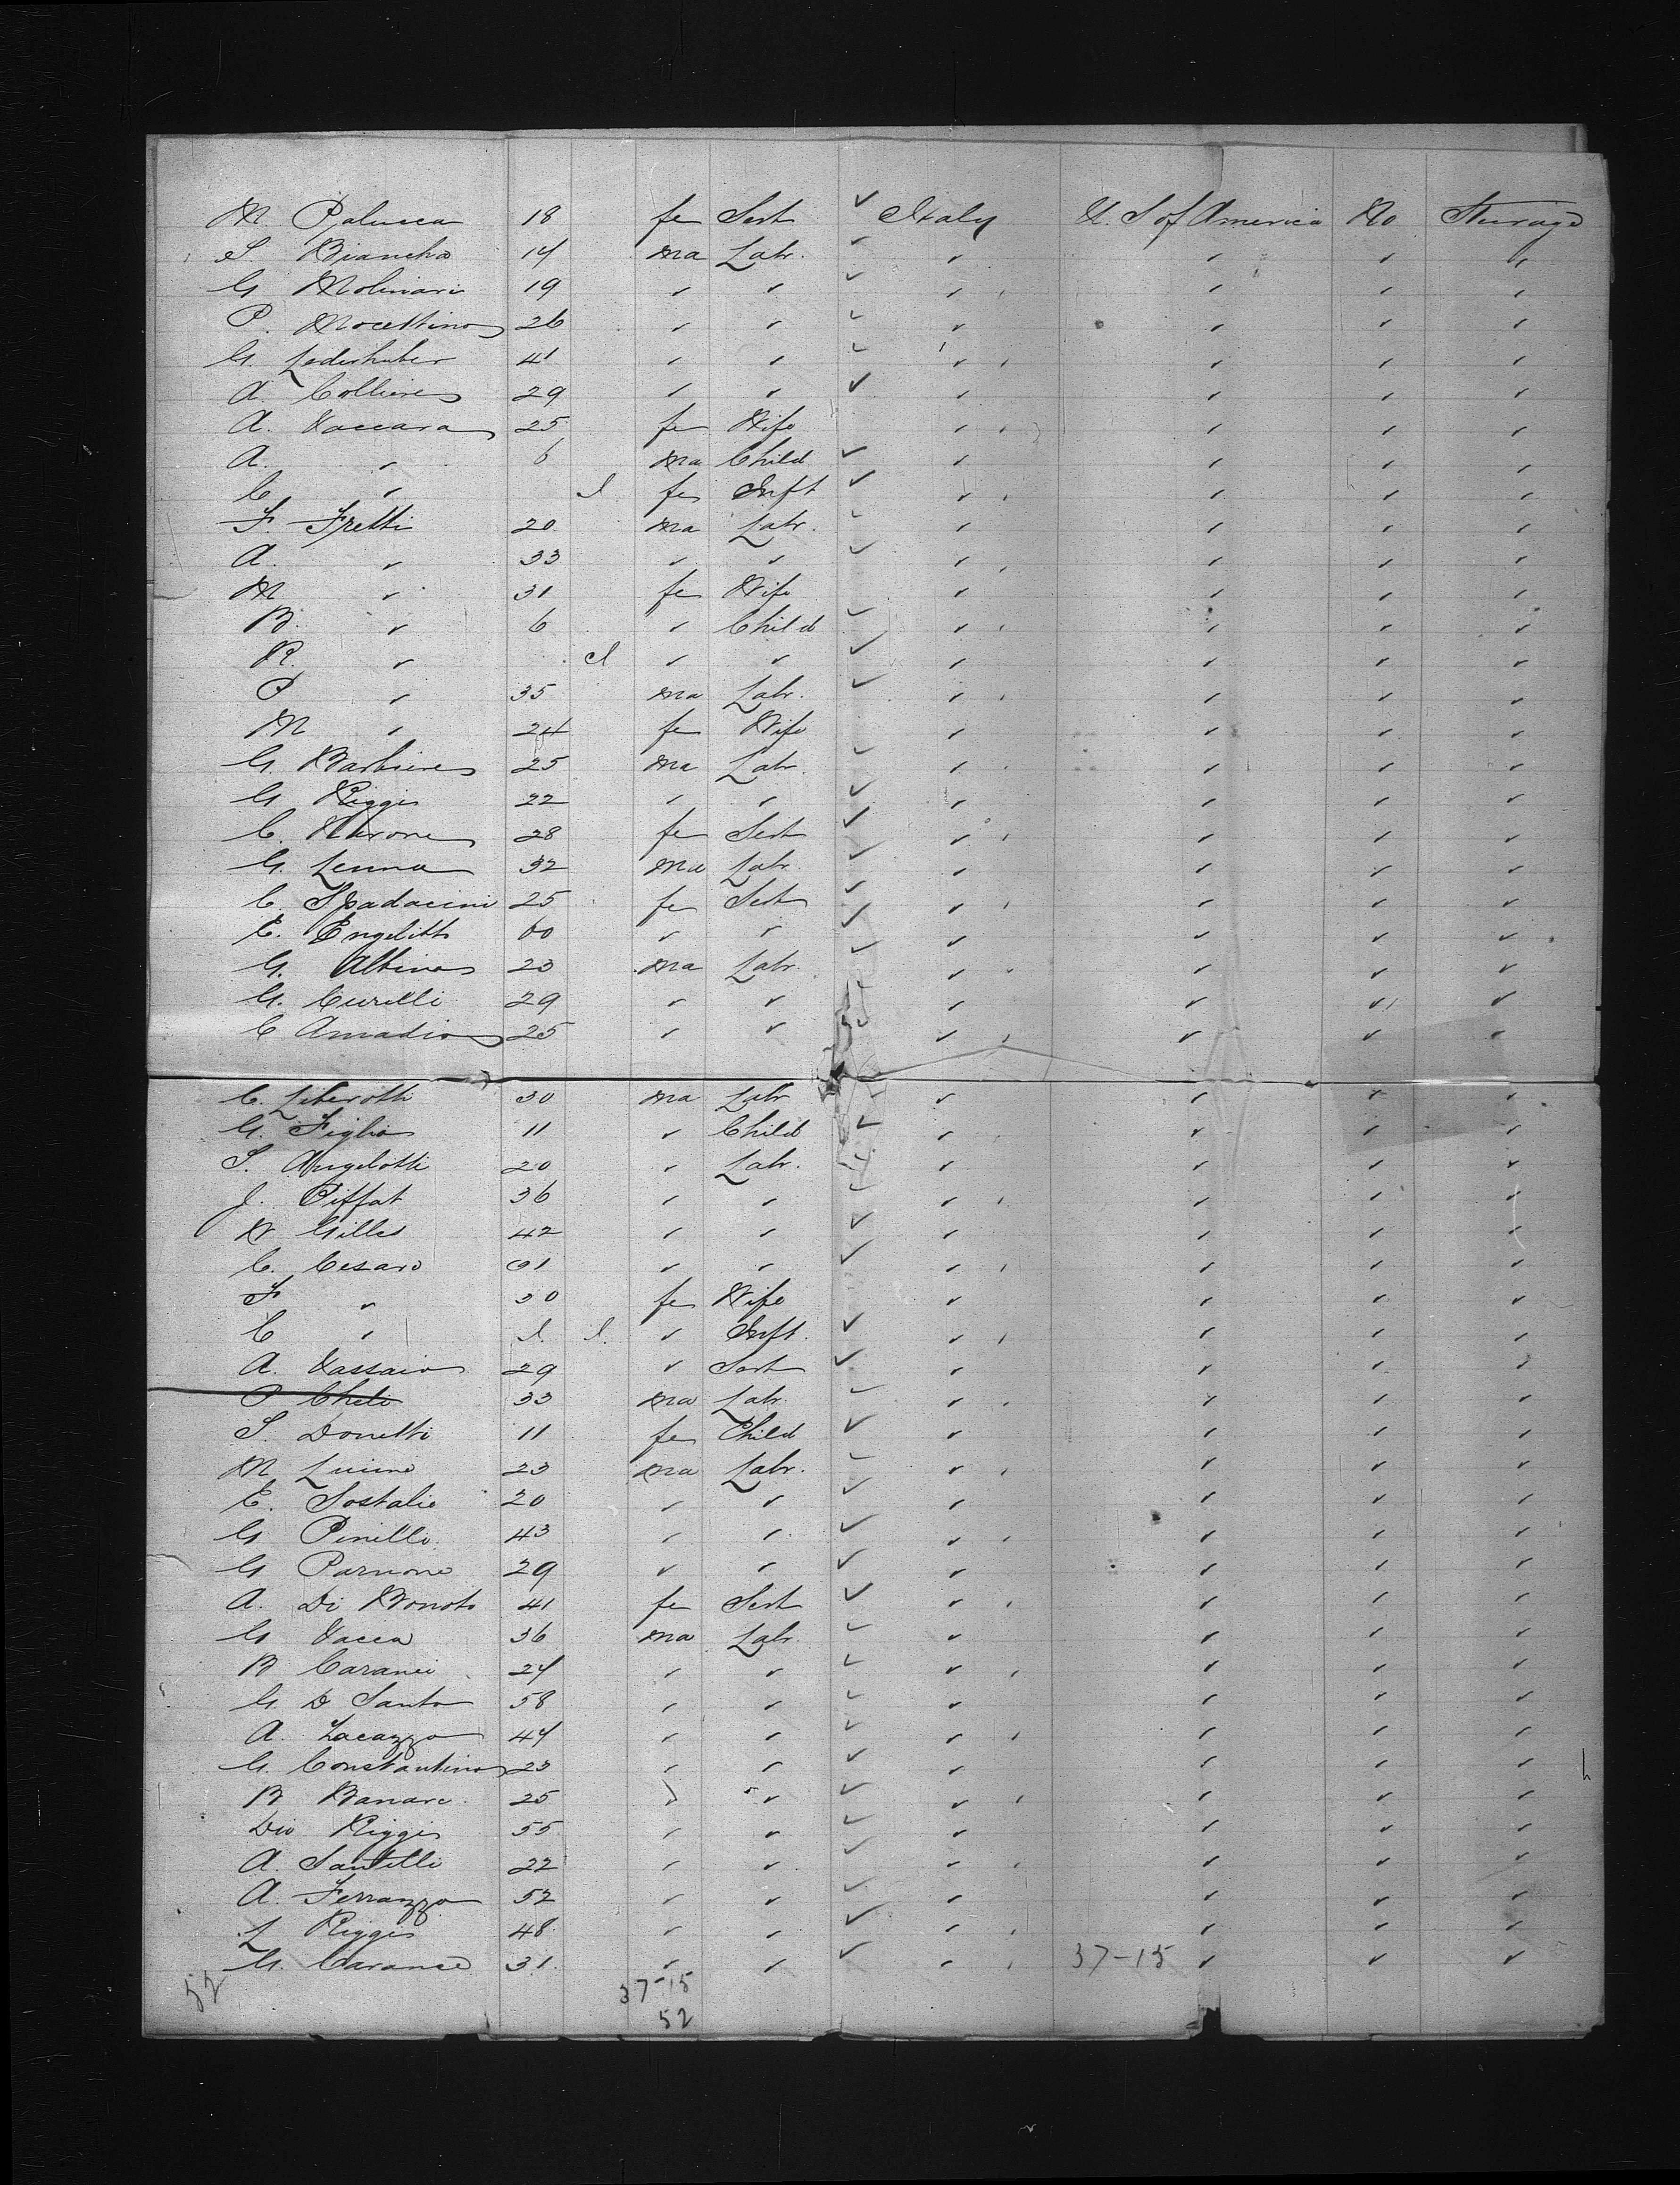 M Palucca 18 fe Sert ✓ Italy U. S of America No Steerage
S. Biancha 14 ma Labr. ✓ " " " "
G Molinari 19 " " ✓ " " " "
P. Mocettino 26 " " ✓ " " " "
G. Lederhuber 41 " " ✓ " " " "
A. Colliere 29 " " ✓ " " " "
A. Vaccara 25 fe Wife " " " "
A. " 6 ma Child ✓ " " " "
C " I fe Inft ✓ " " " "
F. Fretti 20 ma Labr. ✓ " " " "
A. " 33 " " ✓ " " " "
M " 31 fe Wife " " " "
B. " 6 " Child ✓ " " " "
R. " I " " ✓ " " " "
P " 35 ma Labr. ✓ " " " "
M " 24 fe Wife " " " "
G. Barbiere 25 ma Labr. ✓ " " " "
G Riggi 22 " " ✓ " " " "
C. Nerone 28 fe Sert ✓ " " " "
G. Lenna 32 ma Labr ✓ " " " "
C. Spadacini 25 fe Sert ✓ " " " "
E. Engelitto 60 " " ✓ " " " "
G. Albino 23 ma Labr. ✓ " " " "
G. Curelli 29 " " " " " "
C Amadio 25 " " " " " "
C. Liberotti 30 ma Labr ✓ " " " "
G. Figlio 11 " Child ✓ " " " "
S. Angelotti 20 " Labr. " " " "
J. Piffat 36 " " ✓ " " " "
N Gilles 42 " " ✓ " " " "
C. Cesaro 31 " " ✓ " " " "
F " 30 fe Wife " " " "
C " I. I. " Inft. ✓ " " " "
A. Vassaio 29 " Sert ✓ " " " "
P Cheli 33 ma Labr. ✓ " " " "
S. Donetti 11 fe Child ✓ " " " "
M Lucino 23 ma Labr. ✓ " " " "
E. Sostalio 20 " " ✓ " " " "
G Pinelli 43 " " ✓ " " " "
G Parnone 29 " " ✓ " " " "
A. Di Bonoto 41 fe Sert ✓ " " " "
G Vacca 36 ma Labr. ✓ " " " "
B Caranci 24 " " ✓ " " " "
G D Santo 58 " " ✓ " " " "
A. Lacazzo 44 " " ✓ " " " "
G. Constantino 23 " " ✓ " " " "
B Banari 25 " " ✓ " " " "
Dio Riggi 55 " " ✓ " " " "
A. Santilli 22 " " ✓ " " " "
A. Ferrazzo 52 " " ✓ " " " "
L Riggi 48 " " ✓ " " " "
G. Carance 31. " " ✓ " 37-15 " " "
52 37-15
52